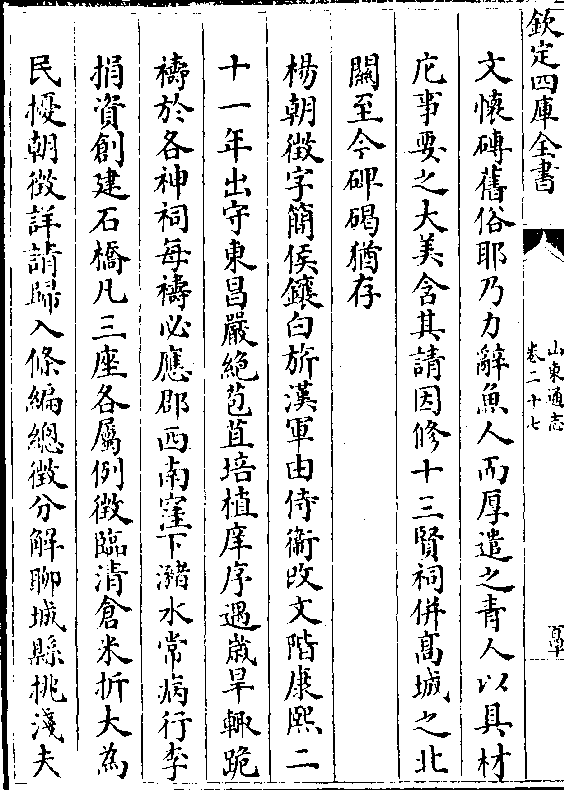 欽定四庫全書
山東通志
卷二十七
文懷磚舊俗耶乃力辭魚人而厚遣之青人以具材
庀事要之大美含其請因修十三賢祠併髙城之北
闗至今碑碣猶存
楊朝徴字簡侯鑲白旂漢軍由侍衛改文階康熙二
十一年出守東昌嚴絶苞苴培植庠序遇歳旱輙跪
禱於各神祠每禱必應郡西南窪下潴水常病行李
捐資創建石橋凡三座各屬例徴臨清倉米折大為
民擾朝徴詳請歸入條編總徴分解聊城縣挑淺夫